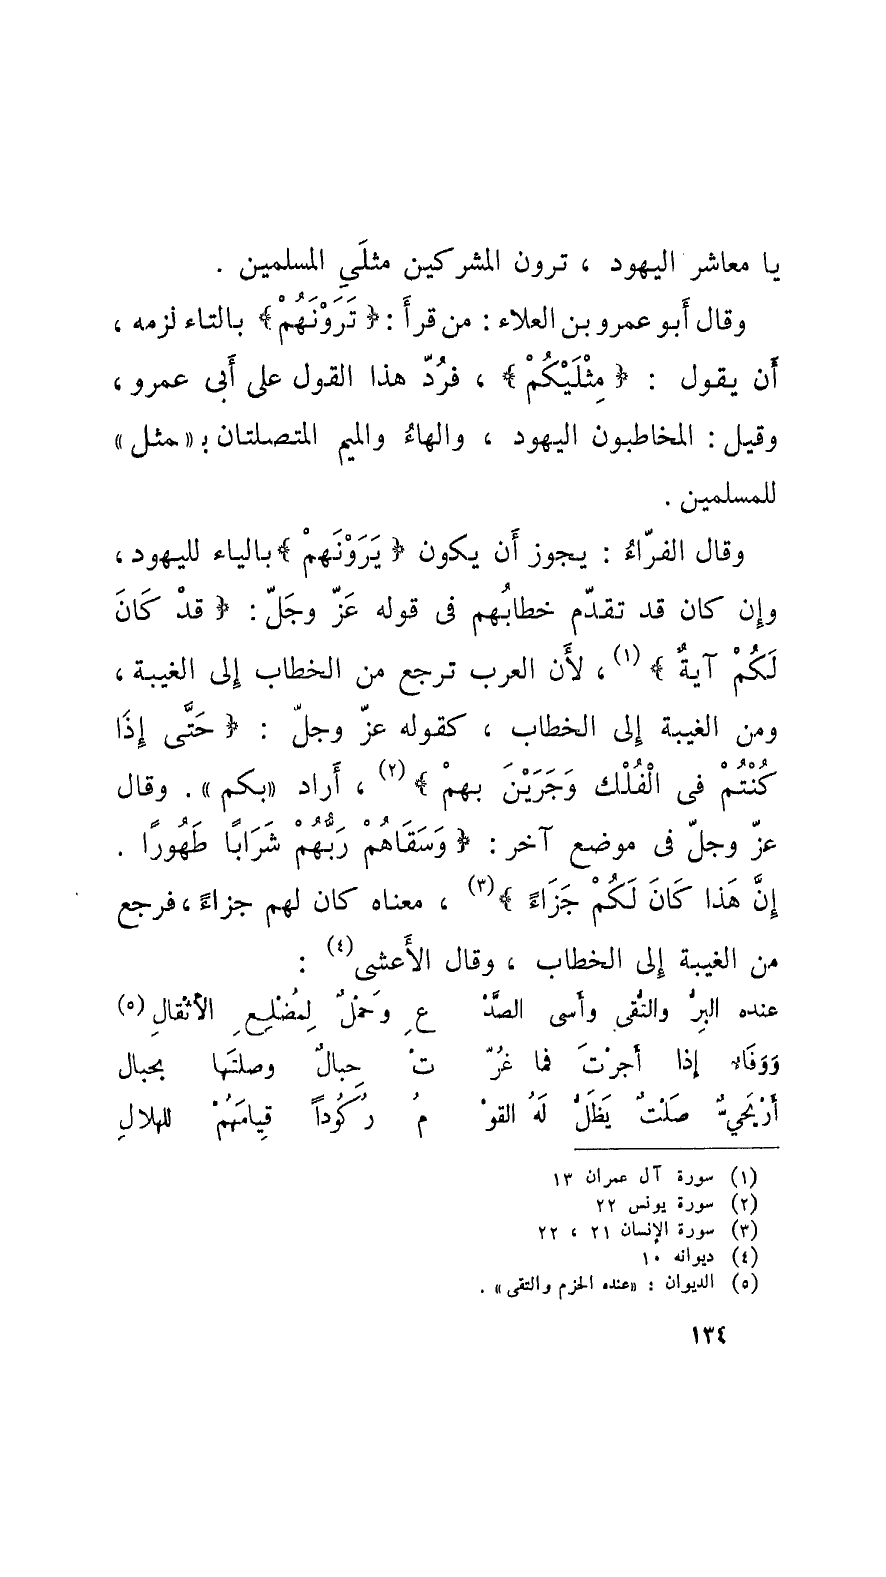 يا معاشر اليهود ، ترون المشركين مثلَيِ المسلمين .
وقال أَبو عمرو بن العلاء : من قرأَ : ﴿ تَرَوْنَهُمْ ﴾ بالتاء لزمه ،
أَن يقول : ﴿ مِثْلَيْكُمْ ﴾ ، فرُدّ هذا القول على أَبى عمرو ،
وقيل : المخاطبون اليهود ، والهاءُ والميم المتصلتان بـ «مثل»
للمسلمين .
وقال الفرّاءُ : يجوز أَن يكون ﴿ يَرَوْنَهمْ ﴾ بالياء لليهود ،
وإن كان قد تقدّم خطابُهم فى قوله عَزّ وجَلّ : ﴿ قدْ كَانَ
لَكُمْ آيةٌ ﴾ (١) ، لأَن العرب ترجع من الخطاب إلى الغيبة ،
ومن الغيبة إلى الخطاب ، كقوله عزّ وجلّ : ﴿ حَتَّى إِذَا
كُنْتُمْ فى الْفُلْك وَجَرَيْنَ بهمْ ﴾ (٢) ، أَراد «بكم» . وقال
عزّ وجلّ فى موضع آخر : ﴿ وَسَقَاهُمْ رَبُّهُمْ شَرَابًا طَهُورًا .
إِنَّ هَذا كَانَ لَكُمْ جَزَاءً ﴾ (٣) ، معناه كان لهم جزاءً ، فرجع
من الغيبة إلى الخطاب ، وقال الأَعشى (٤) :
عنده البِرُّ والتُّقى وأَسى الصَّدْ ع وَحَمْلٌ لِمُضْلِعِ الأَثْقالِ (٥)
وَوَفَاءٌ إذا أَجرْتَ فما غُرّ تْ حِبالٌ وصلتَها بحبال
أَرْيَحيٌّ صَلْتٌ يَظَلُّ لَهُ القوْ مُ رُكُوداً قِيامَهُمْ للهلالِ
(١) سورة آل عمران ١٣
(٢) سورة يونس ٢٢
(٣) سورة الإنسان ٢١ ، ٢٢
(٤) ديوانه ١٠
(٥) الديوان : «عنده الحزم والتقى» .
١٣٤